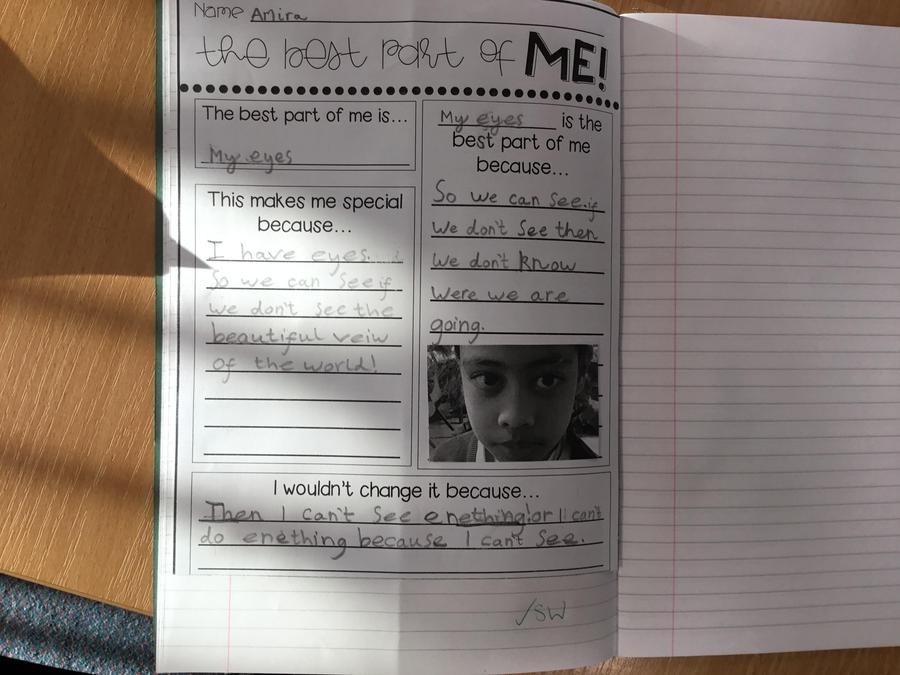 Name Amira
the best part of ME!
The best part of me is...
My eyes
This makes me special
because...
I have eyes.
So we can see if
we don't see the
beautiful veiw
of the world!
My eyes is the
best part of me
because...
So we can see.if
We don't See then
We don't know
Were we are
going.
I wouldn't change it because...
Then I can't See enething!or I can't
do enething because I can't See.
/SW